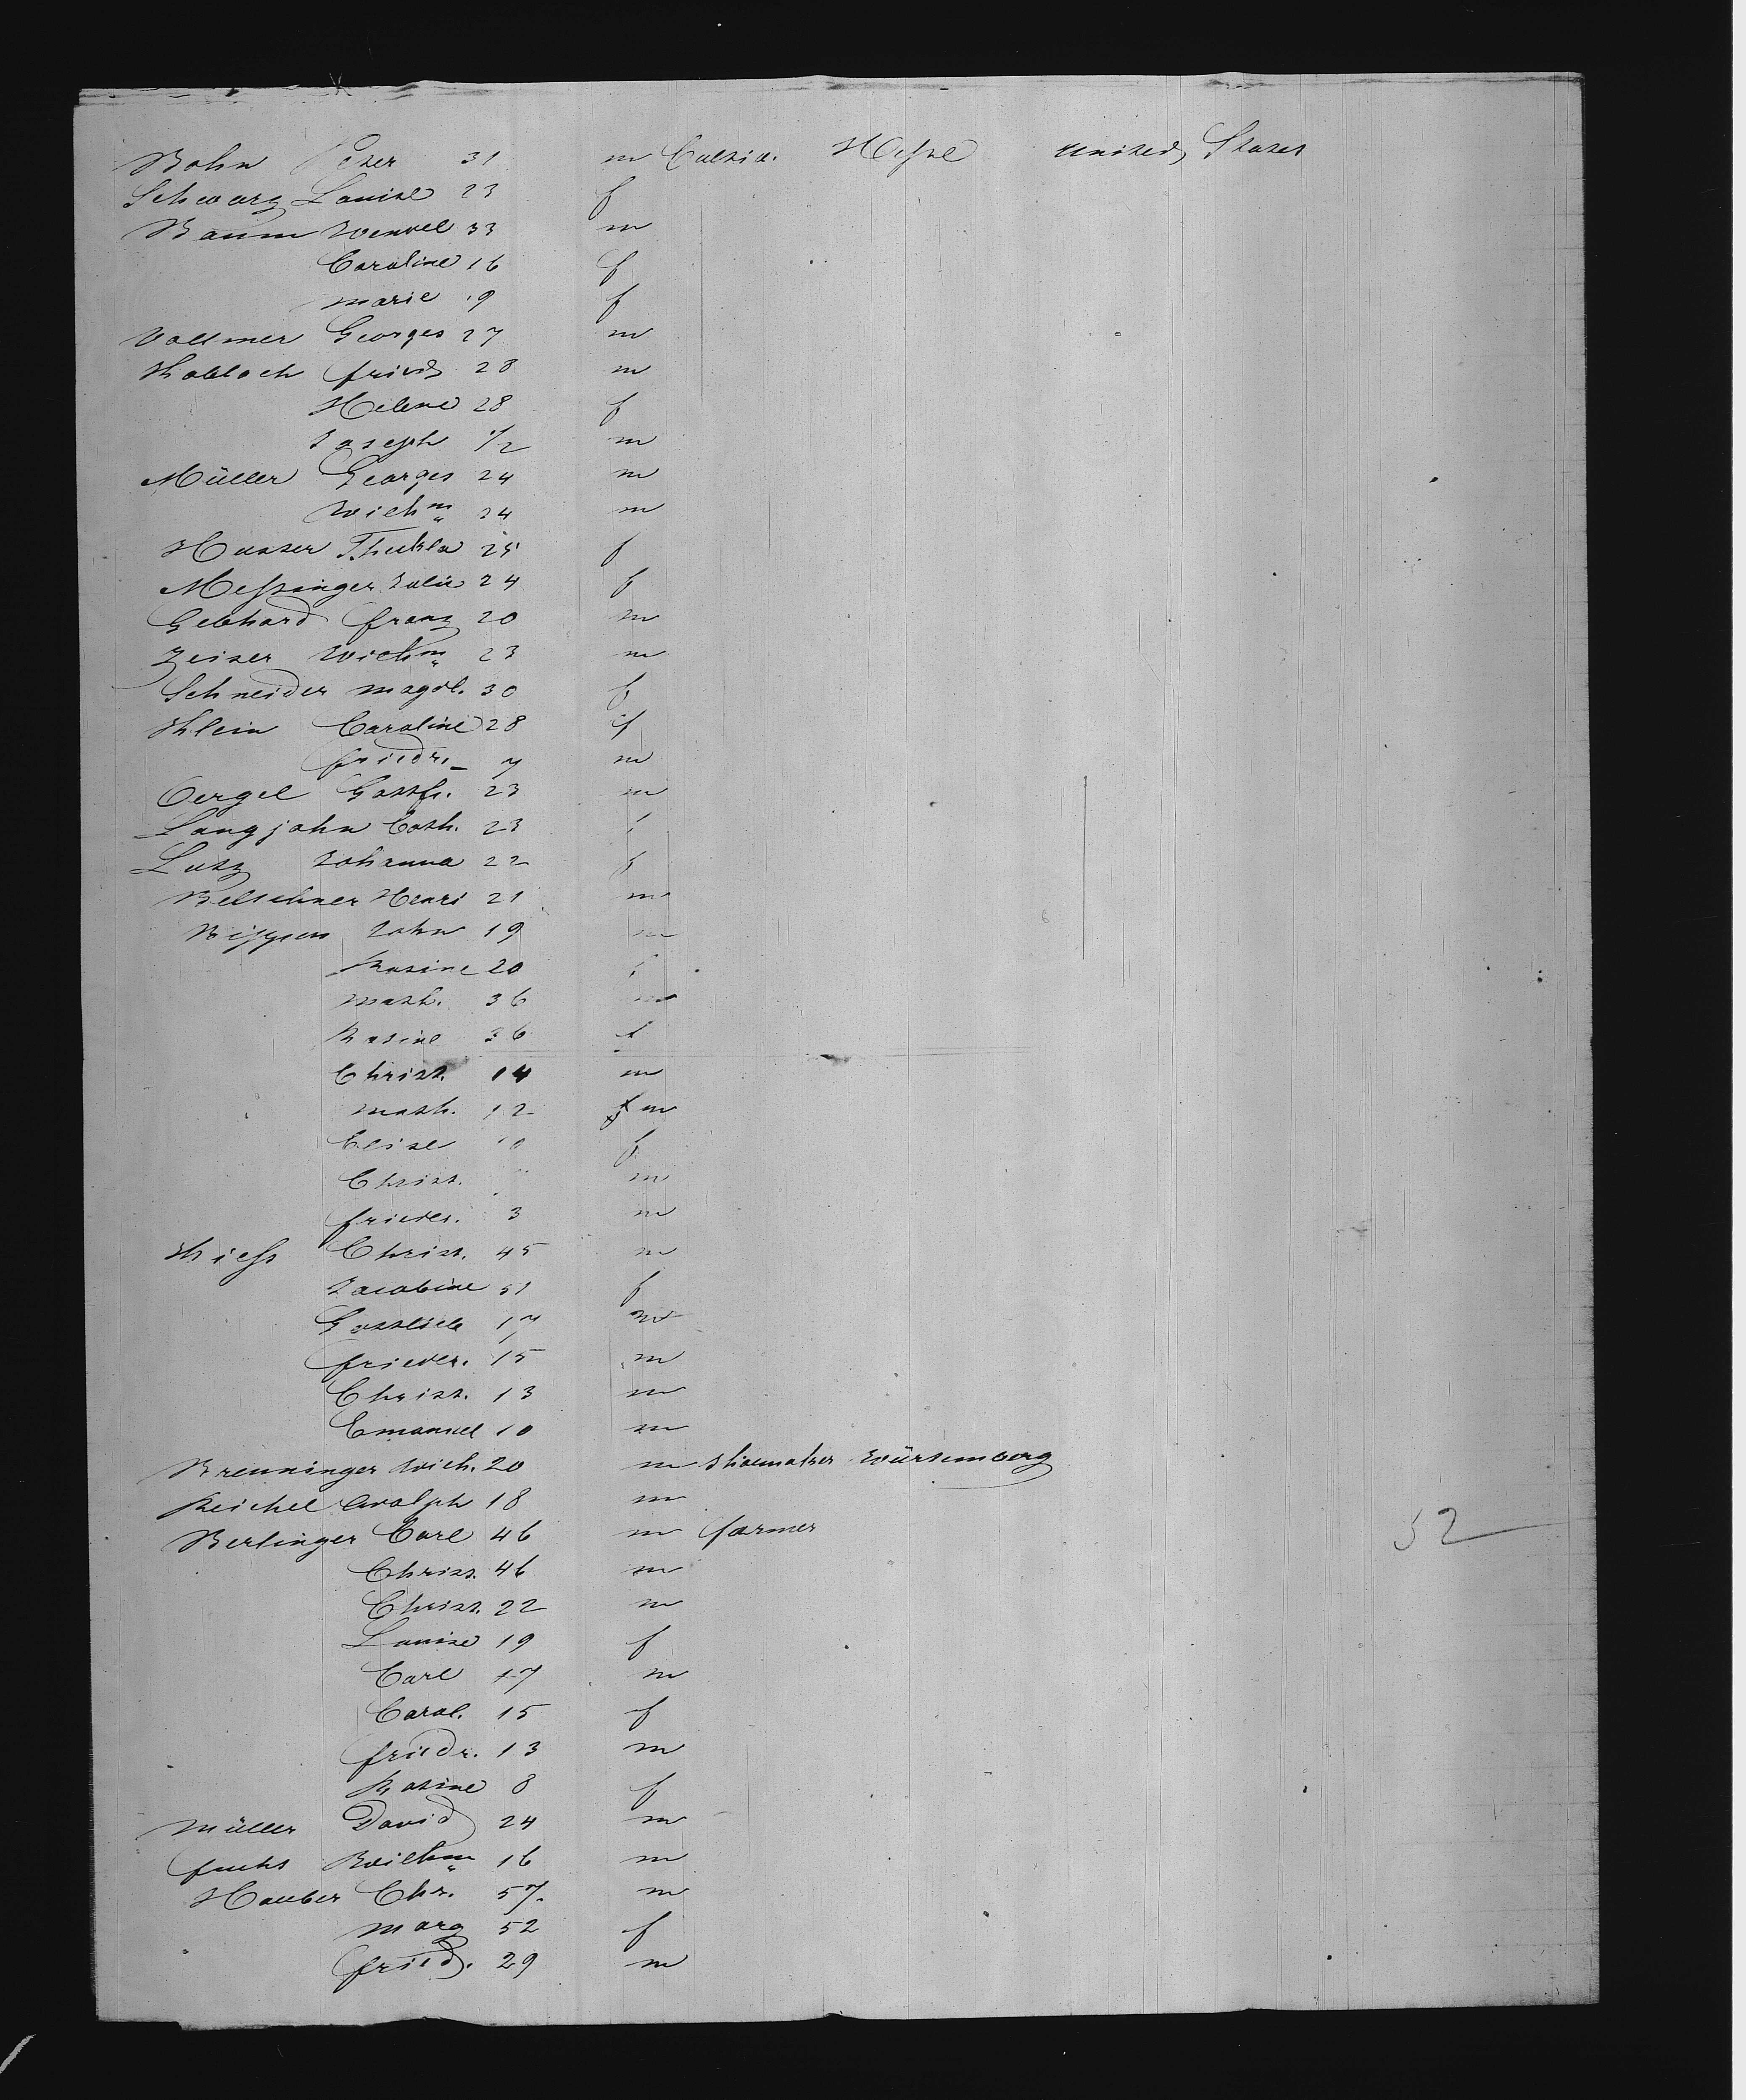 Bohn Peter 31 m Hesse united States
Schwarz Louise 23 f
Baum Wendel 33 m
Caroline 16 f
Marie 19 f
Vollmer Georges 27 m
Kobloch fried 28 m
Helene 28 f
Joseph 1/2 m
Müller Georges 24 m
Wilhm 24 m
Husser Thekla 25 f
Messinger Julie 24 f
Gebhard franz 20 m
Zeiser Wilhm 23 m
Schneider Magdl. 30 f
Klein Caroline 28 f
friedr. 7 m
Oergel Gottfr. 23 m
Langjohn Cath. 23 f
Lutz Johanna 22 f
Belschner Henri 21 m
John 19 m
Rosine 20 f
Math. 36 m
Rosine 36 f
Christ. 14 m
Math. 12 m
Elise 10 f
Christ. m
frieder. 3 m
Kiess Christ. 45 m
Jacobine 51 f
Gottlieb 17 m
frieder. 15 m
Christ. 13 m
Emanuel 10 m
Brenninger Wilh. 20 m Shoemaker Würtemberg
Reichel Adolph 18 m
Berlinger Carl 46 m farmer
52
Christ. 46 m
Christ. 22 m
Louise 19 f
Carl 17 m
Carol. 15 f
friedr. 13 m
Rosine 8 f
Müller David 24 m
fuchs Wilhm 16 m
Hauber Chr. 57. m
Marg 52 f
fried. 29 m